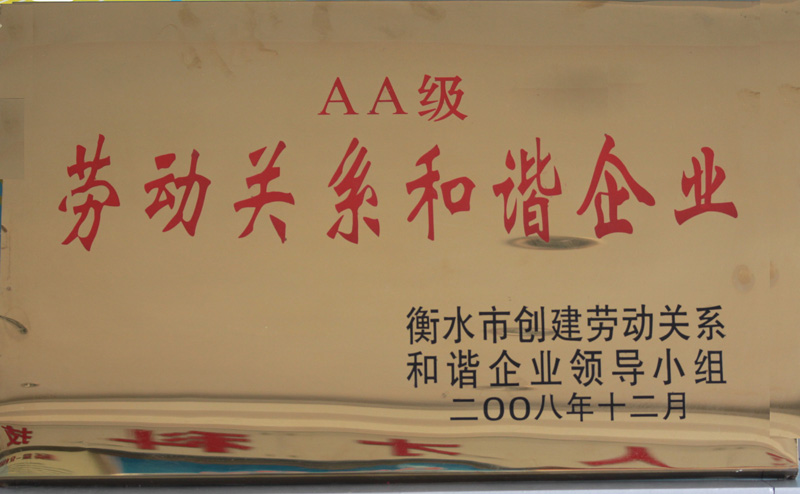 AA级
劳动关系和谐企业
衡水市创建劳动关系
和谐企业领导小组
二OO八年十二月